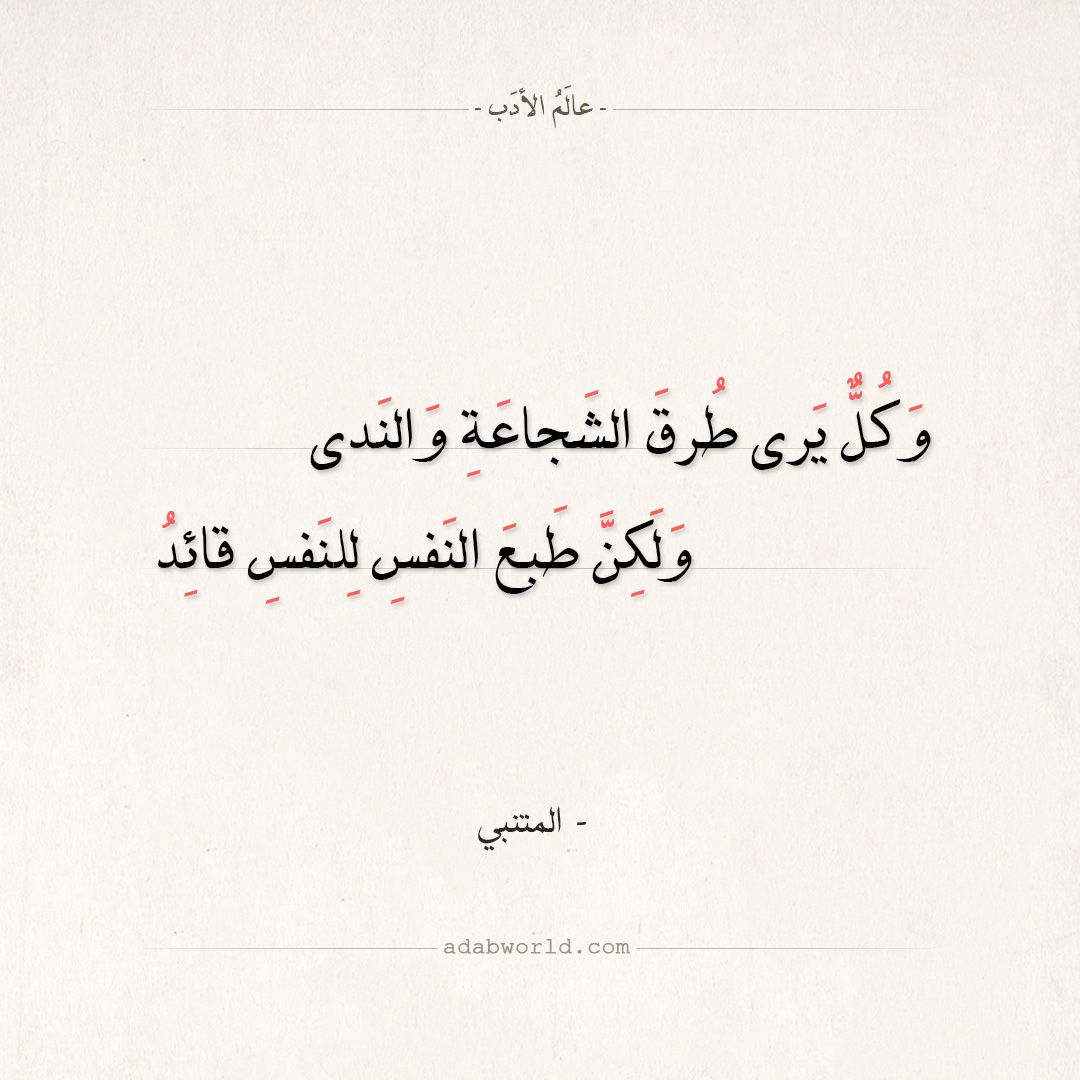 - عالَمُ الأدَب -
وَكُلٌّ يَرى طُرقَ الشَجاعَةِ وَالنَدى
وَلَكِنَّ طَبعَ النَفسِ لِلنَفسِ قائِدُ
- المتنبي
adabworld.com